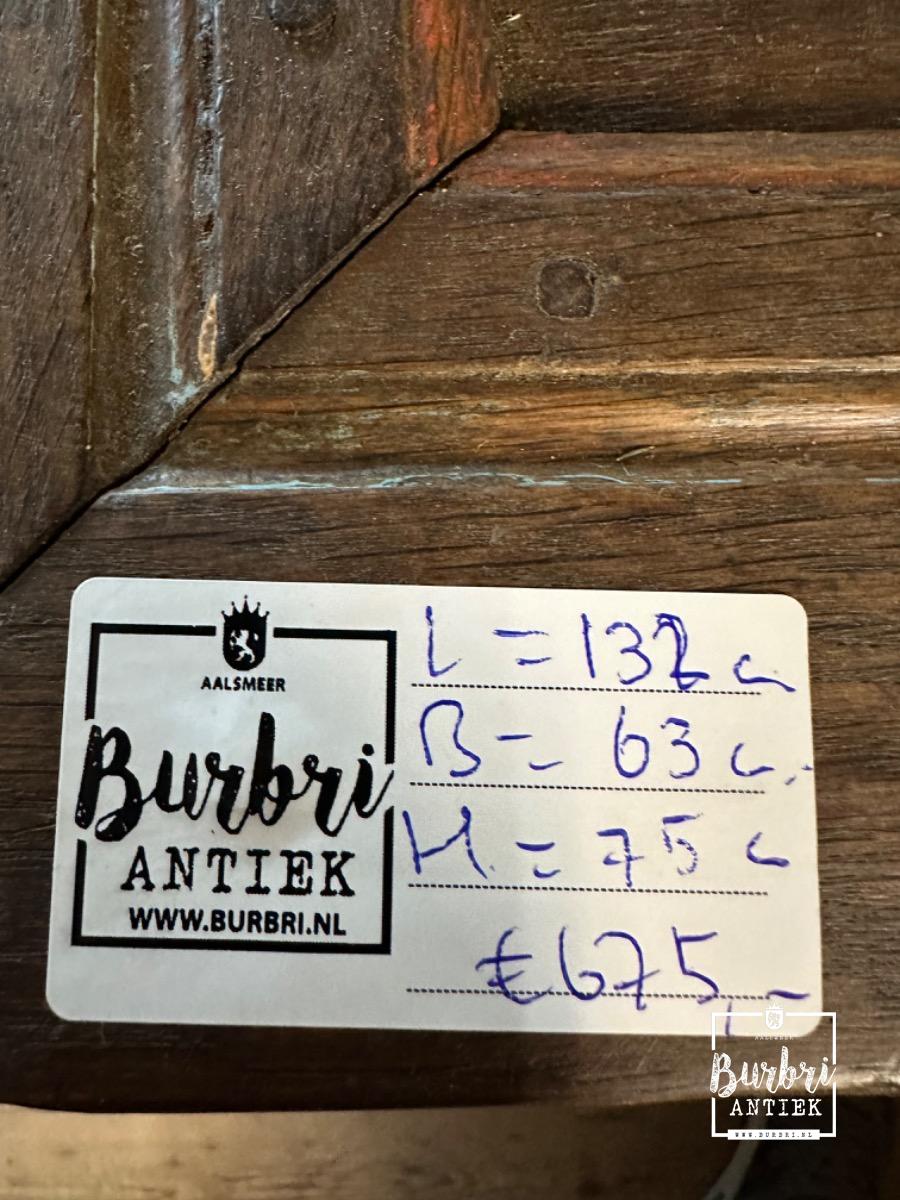 AALSMEER
Burbri
ANTIEK
WWW.BURBRI.NL
L = 132 c
B = 63 c
H = 75 c
€675,-
Burbri
ANTIEK
WWW.BURBRI.NL